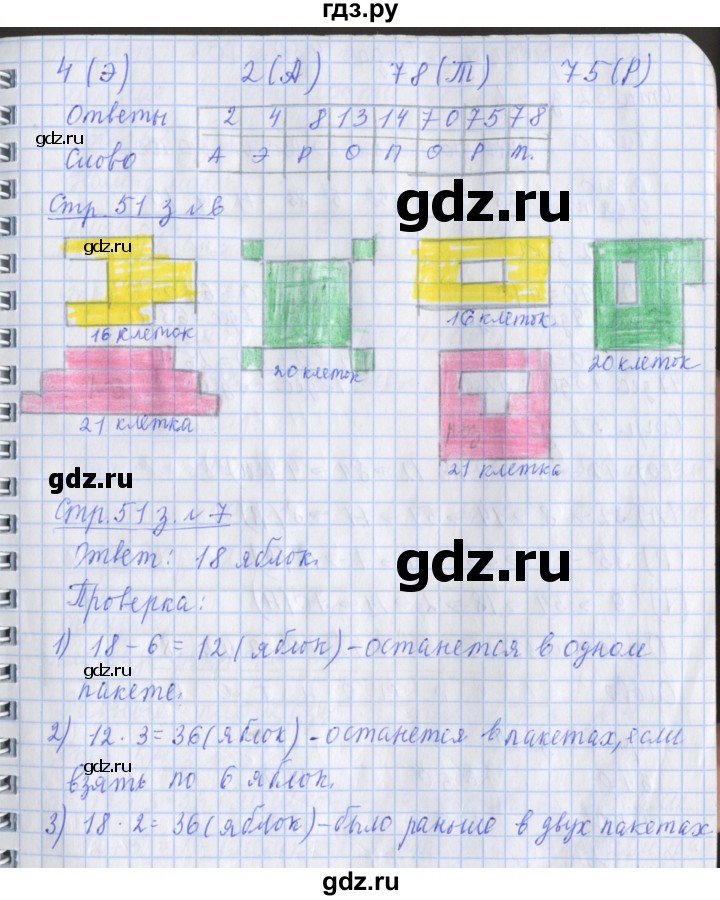 гдз.ру
4 (Э) 2 (А) 78 (Т) 75 (Р)
Ответы 2 4 8 13 14 70 75 78
gdz.ru
Слово А Э Р О П О Р Т.
gdz.ru
Стр. 51 з №6
gdz.ru
16 клеток
20 клеток
16 клеток
20 клеток
21 клетка
21 клетка
gdz.ru
Стр. 51 з. №7
Ответ: 18 яблок.
gdz.ru
Проверка:
1) 18 - 6 = 12 (яблок) - останется в одном
gdz.ru
пакете.
2) 12 · 3 = 36 (яблок) - останется в пакетах, если
gdz.ru
взять по 6 яблок.
3) 18 · 2 = 36 (яблок) - было раньше в двух пакетах
gdz.ru
gdz.ru